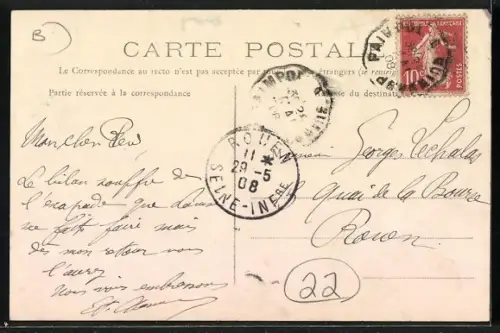 B
CARTE POSTALE
La Correspondance au recto n'est pas acceptée par étrangers (se renseigner
Partie réservée à la correspondance
du destinataire
PAIMPOL
10
POSTES
PAIMPOL
ROUEN
11 *
29 - 5
08
SEINE-INFRE
Mon cher
Le bilan souffre de
l'escapade que
ne fait faire mais
dès mon retour vous
l'aurez
Nous vous embrassons
Monsieur Georges Lechalas
Quai de la Bourse
Rouen
22